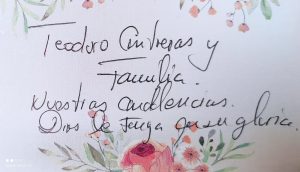 Teodoro Contreras y
Familia.
Nuestras condolencias.
Dios le tenga en su gloria.